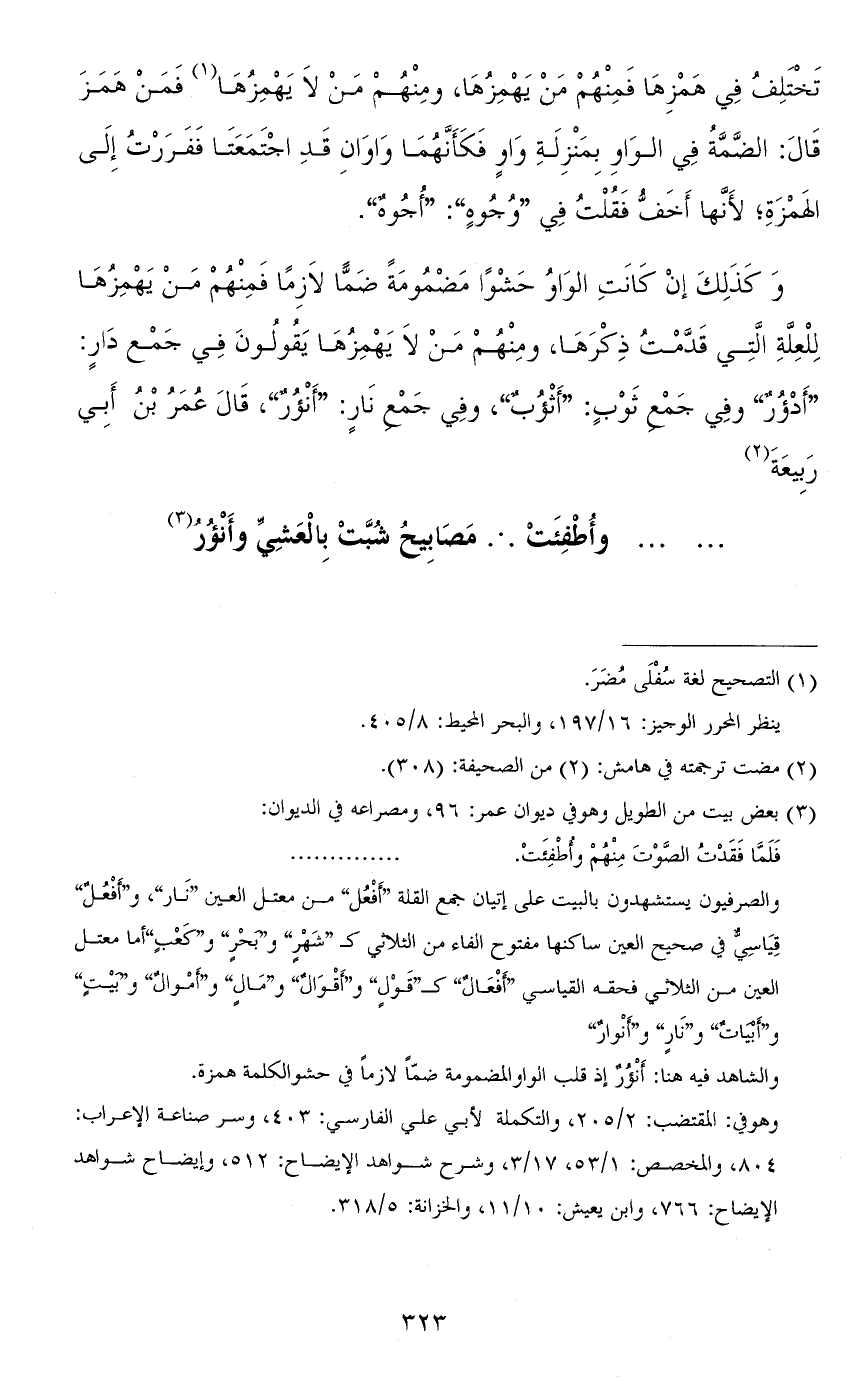 تَخْتَلِفُ فِي هَمْزِهَا فَمِنْهُمْ مَنْ يَهْمِزُهَا، ومِنْهُمْ مَنْ لاَ يَهْمِزُهَا(١) فَمَنْ هَمَزَ
قَالَ: الضَّمَّةُ فِي الوَاوِ بِمَنْزِلَةِ وَاوٍ فَكَأَنَّهُمَا وَاوَانِ قَدِ اجْتَمَعَتَا فَفَرَرْتُ إِلَى
الهَمْزَةِ؛ لأَنَّها أَخَفُّ فَقُلْتُ فِي ”وُجُوهٍ“: ”أُجُوهٌ“.
وَ كَذَلِكَ إنْ كَانَتِ الوَاوُ حَشْوًا مَضْمُومَةً ضَمًّا لاَزِمًا فَمِنْهُمْ مَنْ يَهْمِزُهَا
لِلْعِلَّةِ الَّتِي قَدَّمْتُ ذِكْرَهَا، ومِنْهُمْ مَنْ لاَ يَهْمِزُهَا يَقُولُونَ فِي جَمْعِ دَارٍ:
”أَدْؤُرٌ“ وفِي جَمْعِ ثَوْبٍ: ”أَثْؤُبٌ“، وفِي جَمْعِ نَارٍ: ”أَنْؤُرٌ“، قَالَ عُمَرُ بْنُ أَبِي
رَبِيعَةَ(٢)
... ... وأُطْفِئَتْ .·. مَصَابِيحُ شُبَّتْ بِالْعَشِيِّ وأَنْؤُرُ(٣)
(١) التصحيح لغة سُفْلَى مُضَرَ.
ينظر المحرر الوجيز: ١٩٧/١٦، والبحر المحيط: ٤٠٥/٨.
(٢) مضت ترجمته في هامش: (٢) من الصحيفة: (٣٠٨).
(٣) بعض بيت من الطويل وهوفي ديوان عمر: ٩٦، ومصراعه في الديوان:
فَلَمَّا فَقَدْتُ الصَّوْتَ مِنْهُمْ وأُطْفِئَتْ. ..............
والصرفيون يستشهدون بالبيت على إتيان جمع القلة ”أَفْعُل“ من معتل العين ”نَار“، و”أَفْعُلٌ“
قِيَاسِيٌّ في صحيح العين ساكنها مفتوح الفاء من الثلاثي كـ ”شَهْرٍ“ و”بَحْرٍ“ و”كَعْبٍ“أما معتل
العين من الثلاثي فحقه القياسي ”أَفْعَالٌ“ كـ”قَوْلٍ“ و”أَقْوَالٌ“ و”مَالٍ“ و”أَمْوالٌ“ و”بَيْتٍ“
و”أَبْيَاتٌ“ و”نَارٍ“ و”أَنْوارٌ“
والشاهد فيه هنا: أَنْؤُرٌ إذ قلب الواوالمضمومة ضمّاً لازماً في حشوالكلمة همزة.
وهوفي: المقتضب: ٢٠٥/٢، والتكملة لأبي علي الفارسي: ٤٠٣، وسر صناعة الإعراب:
٨٠٤، والمخصص: ٥٣/١، ٣/١٧، وشرح شواهد الإيضاح: ٥١٢، وإيضاح شواهد
الإيضاح: ٧٦٦، وابن يعيش: ١١/١٠، والخزانة: ٣١٨/٥.
٣٢٣